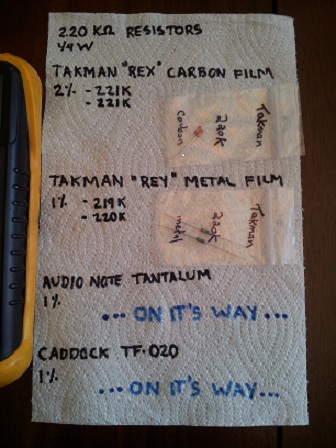 220 KΩ RESISTORS
1/4 W
TAKMAN "REX" CARBON FILM
2% - 221K
- 221K
Takman
220K
Carbon
TAKMAN "REY" METAL FILM
1% - 219K
- 220K
Takman
220K
metal
AUDIO NOTE TANTALUM
1%
... ON IT'S WAY ...
CADDOCK TF-020
1%
... ON IT'S WAY...